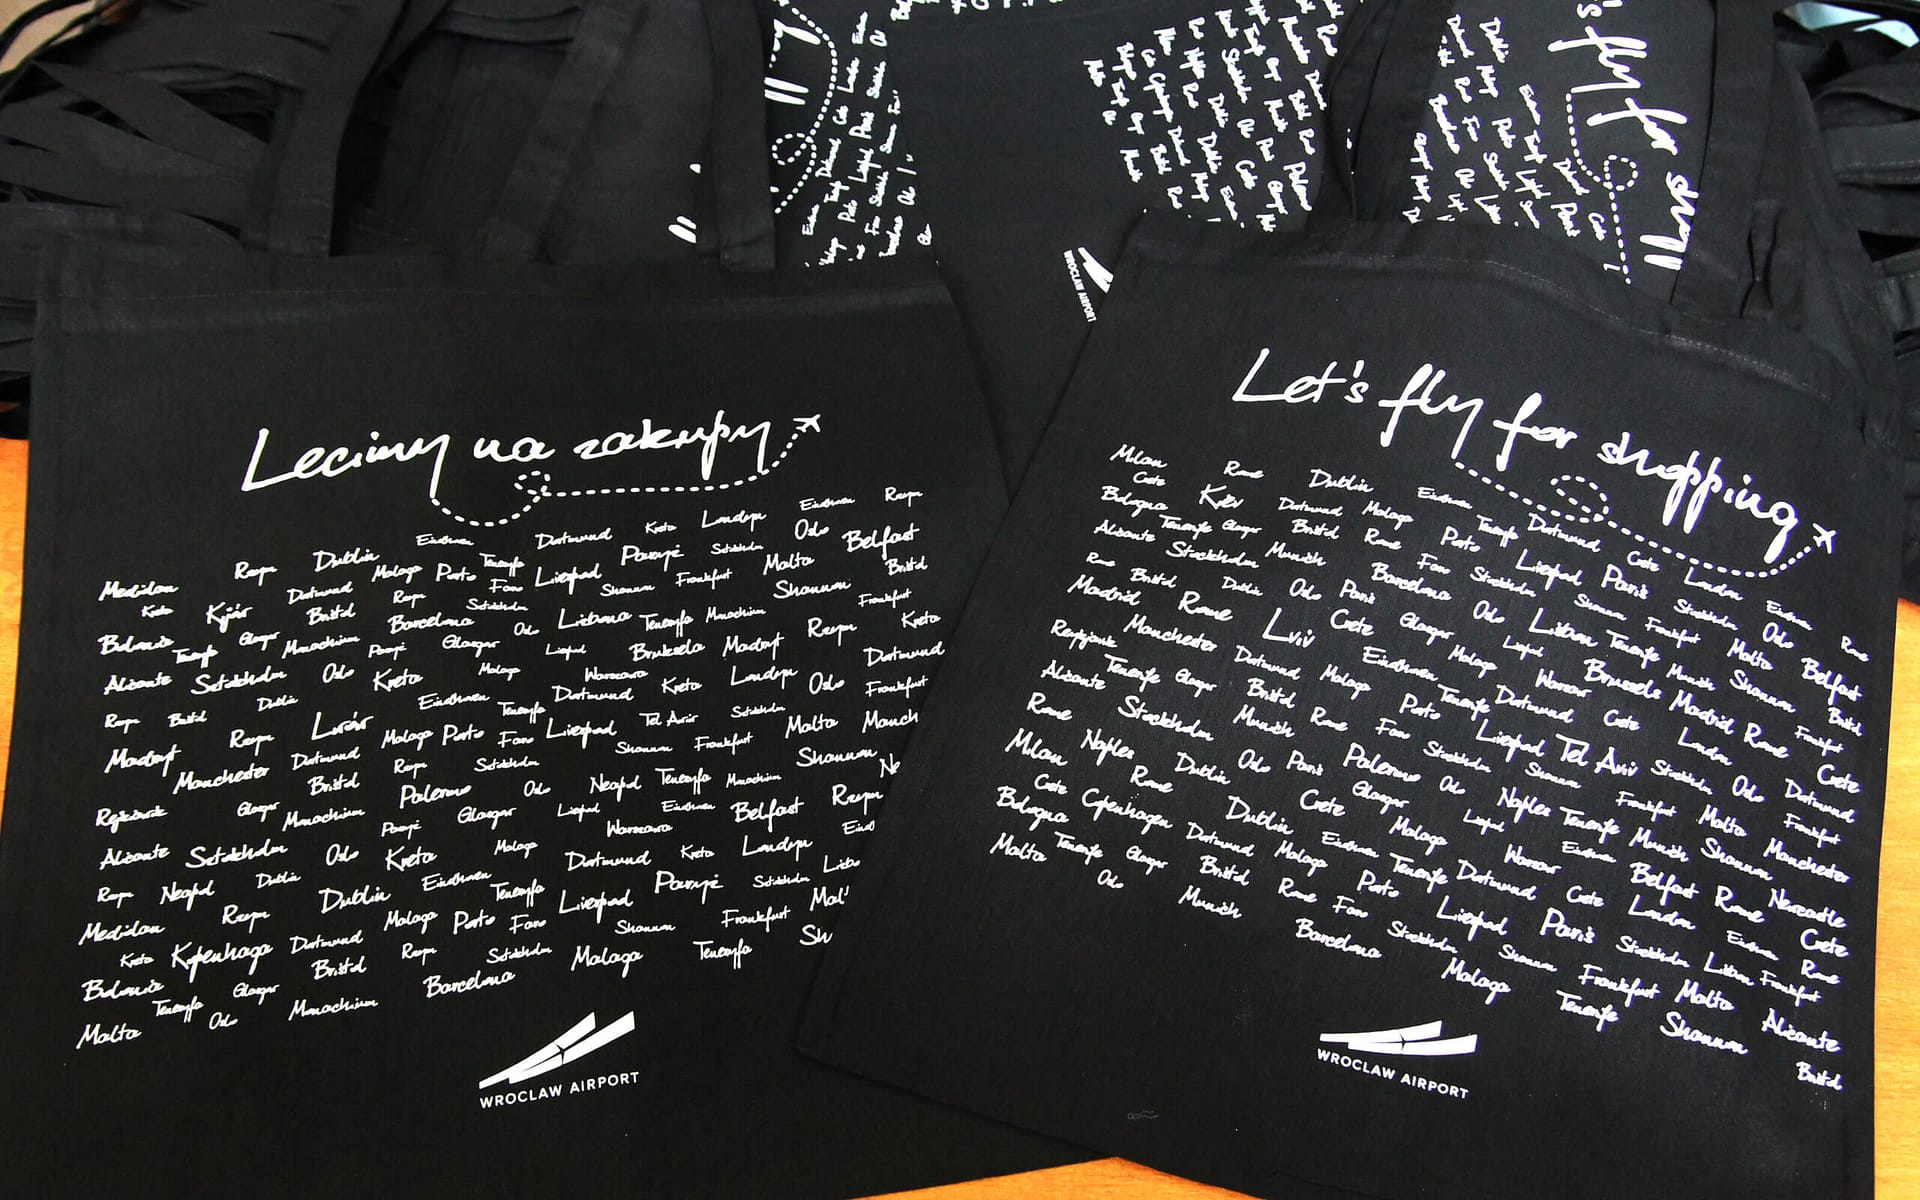 Lecimy na zakupy
Mediolan Rzym Dublin Eindhoven Dortmund Kreta Londyn Eindhoven Rzym
Kreta Kijów Dortmund Malaga Porto Teneryfa Liverpool Paryż Sztokholm Oslo Belfast
Bolonia Teneryfa Glasgow Bristol Rzym Faro Sztokholm Shannon Frankfurt Malta Bristol
Alicante Sztokholm Monachium Barcelona Oslo Lizbona Teneryfa Monachium Shannon Frankfurt
Rzym Bristol Dublin Oslo Paryż Glasgow Liverpool Bruksela Madryt Rzym Kreta
Madryt Rzym Lwów Kreta Eindhoven Malaga Teneryfa Warszawa Dortmund Kreta Londyn Oslo Dortmund
Manchester Dortmund Malaga Porto Faro Liverpool Tel Aviv Sztokholm Malta Frankfurt
Reykjavik Glasgow Bristol Rzym Sztokholm Shannon Frankfurt Manch
Alicante Sztokholm Monachium Palermo Oslo Neapol Teneryfa Monachium Shannon Ne
Rzym Neapol Dublin Oslo Paryż Kreta Glasgow Malaga Liverpool Warszawa Eindhoven Belfast Rzym
Mediolan Rzym Dublin Eindhoven Teneryfa Dortmund Kreta Londyn Eind
Kreta Kopenhaga Dortmund Malaga Porto Faro Liverpool Paryż Sztokholm Lizbo
Bolonia Teneryfa Glasgow Bristol Rzym Sztokholm Shannon Frankfurt Mal
Malta Oslo Monachium Barcelona Malaga Teneryfa Sh
WROCLAW AIRPORT
Let's fly for shopping
Milan Rome Dublin Eindhoven Teneryfa Dortmund Crete London Eindhoven Rome
Crete Kiev Dortmund Malaga Porto Liverpool Paris Stockholm Oslo Belfast
Bologna Tenerife Glasgow Bristol Rome Faro Stockholm Shannon Frankfurt Malta Bristol
Alicante Stockholm Munich Barcelona Oslo Lisbon Tenerife Munich Shannon Frankfurt
Rome Bristol Dublin Oslo Paris Glasgow Liverpool Brussels Madrid Rome Crete
Madrid Rome Lviv Crete Eindhoven Malaga Tenerife Warsaw Dortmund Crete London Oslo Dortmund
Reykjavik Manchester Dortmund Malaga Porto Liverpool Tel Aviv Stockholm Malta Frankfurt
Alicante Tenerife Glasgow Bristol Rome Faro Stockholm Shannon Frankfurt Manchester
Rome Stockholm Munich Palermo Oslo Naples Tenerife Munich Shannon Newcastle
Milan Naples Dublin Oslo Paris Crete Glasgow Malaga Liverpool Warsaw Eindhoven Belfast Rome Crete
Rome Dublin Eindhoven Tenerife Dortmund Crete London Eindhoven Rome
Bologna Crete Copenhagen Dortmund Malaga Porto Liverpool Paris Stockholm Lisbon Frankfurt
Malta Tenerife Glasgow Bristol Rome Faro Stockholm Shannon Frankfurt Malta Alicante
Oslo Munich Barcelona Malaga Tenerife Shannon Bristol
WROCLAW AIRPORT
WROCLAW AIRPORT
's fly for shopp